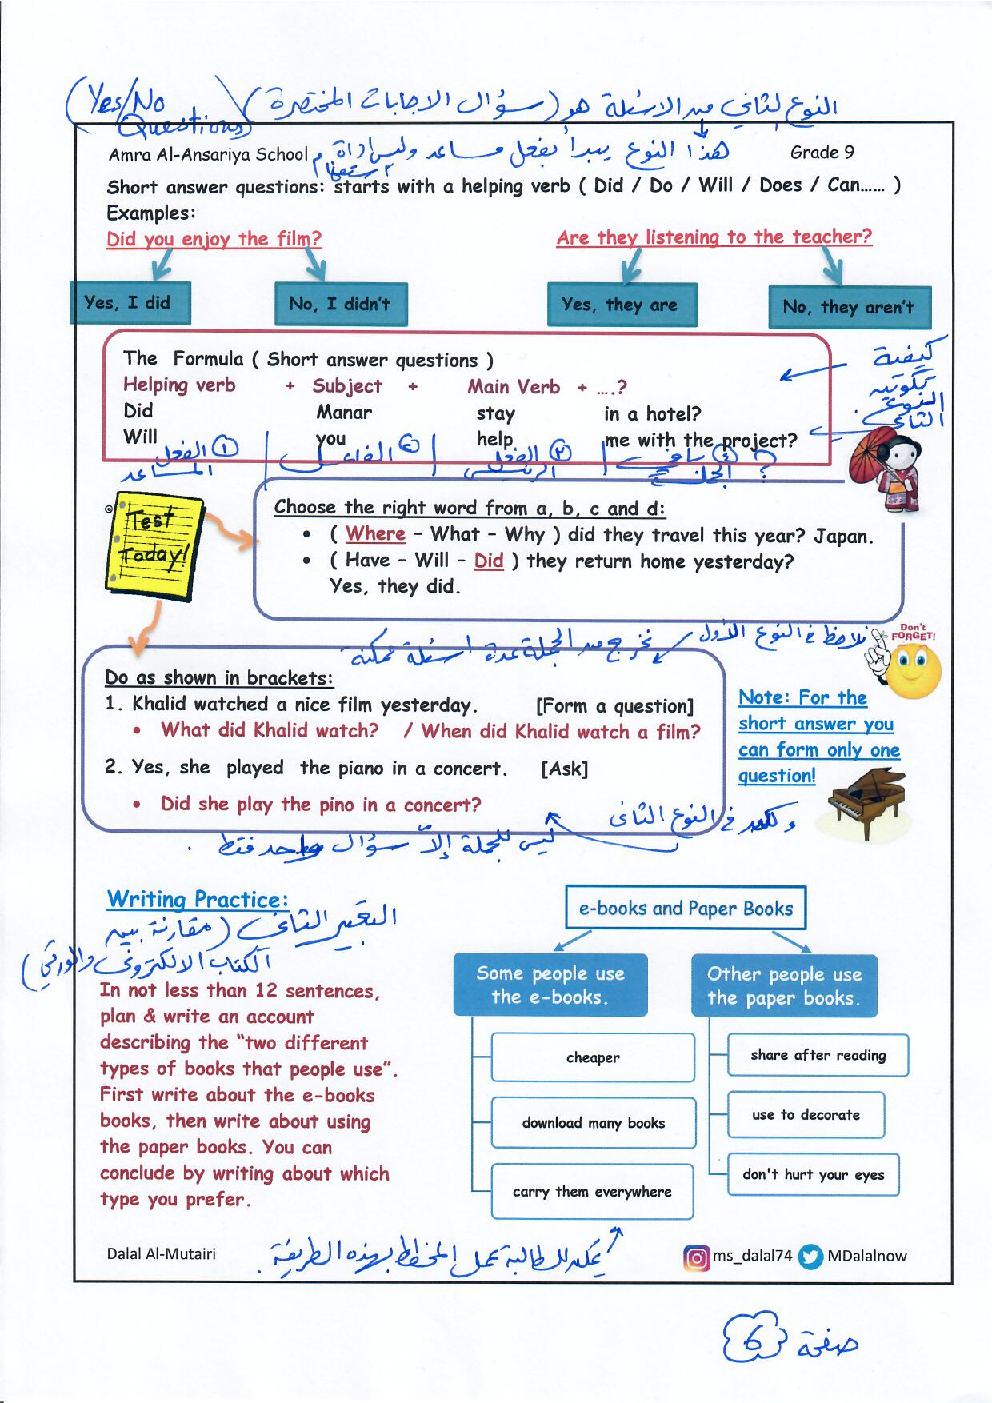 النوع الثاني من الاسئلة هو (سؤال الاجابات المختصرة) (Yes/No
Questions)
Amra Al-Ansariya School هذا النوع يبدأ بفعل مساعد وليس اداة استفهام Grade 9
Short answer questions: starts with a helping verb ( Did / Do / Will / Does / Can...... )
Examples:
Did you enjoy the film? Are they listening to the teacher?
Yes, I did No, I didn't Yes, they are No, they aren't
The Formula ( Short answer questions )
Helping verb + Subject + Main Verb + ....?
Did Manar stay in a hotel?
Will you help me with the project?
كيفية
تكوين
النوع
الثاني
① الفعل المساعد
الفاعل
② الفعل الرئيسي
الجملة ?
Test
Today!
Choose the right word from a, b, c and d:
• ( Where - What - Why ) did they travel this year? Japan.
• ( Have - Will - Did ) they return home yesterday?
Yes, they did.
نلاحظ في النوع الأول نخرج من الجملة عدة اسئلة ممكنة
Don't
FORGET!
Do as shown in brackets:
1. Khalid watched a nice film yesterday. [Form a question]
• What did Khalid watch? / When did Khalid watch a film?
2. Yes, she played the piano in a concert. [Ask]
• Did she play the pino in a concert?
Note: For the
short answer you
can form only one
question!
ولكن في النوع الثاني
ليس للجملة إلّا سؤال واحد فقط .
Writing Practice:
التعبير الثاني (مقارنة بين
الكتاب الالكتروني والورقي)
In not less than 12 sentences,
plan & write an account
describing the "two different
types of books that people use".
First write about the e-books
books, then write about using
the paper books. You can
conclude by writing about which
type you prefer.
e-books and Paper Books
Some people use
the e-books.
cheaper
download many books
carry them everywhere
Other people use
the paper books.
share after reading
use to decorate
don't hurt your eyes
Dalal Al-Mutairi يمكن للطالبة عمل المخطط بهذه الطريقة . ms_dalal74 MDalalnow
صفحة 6